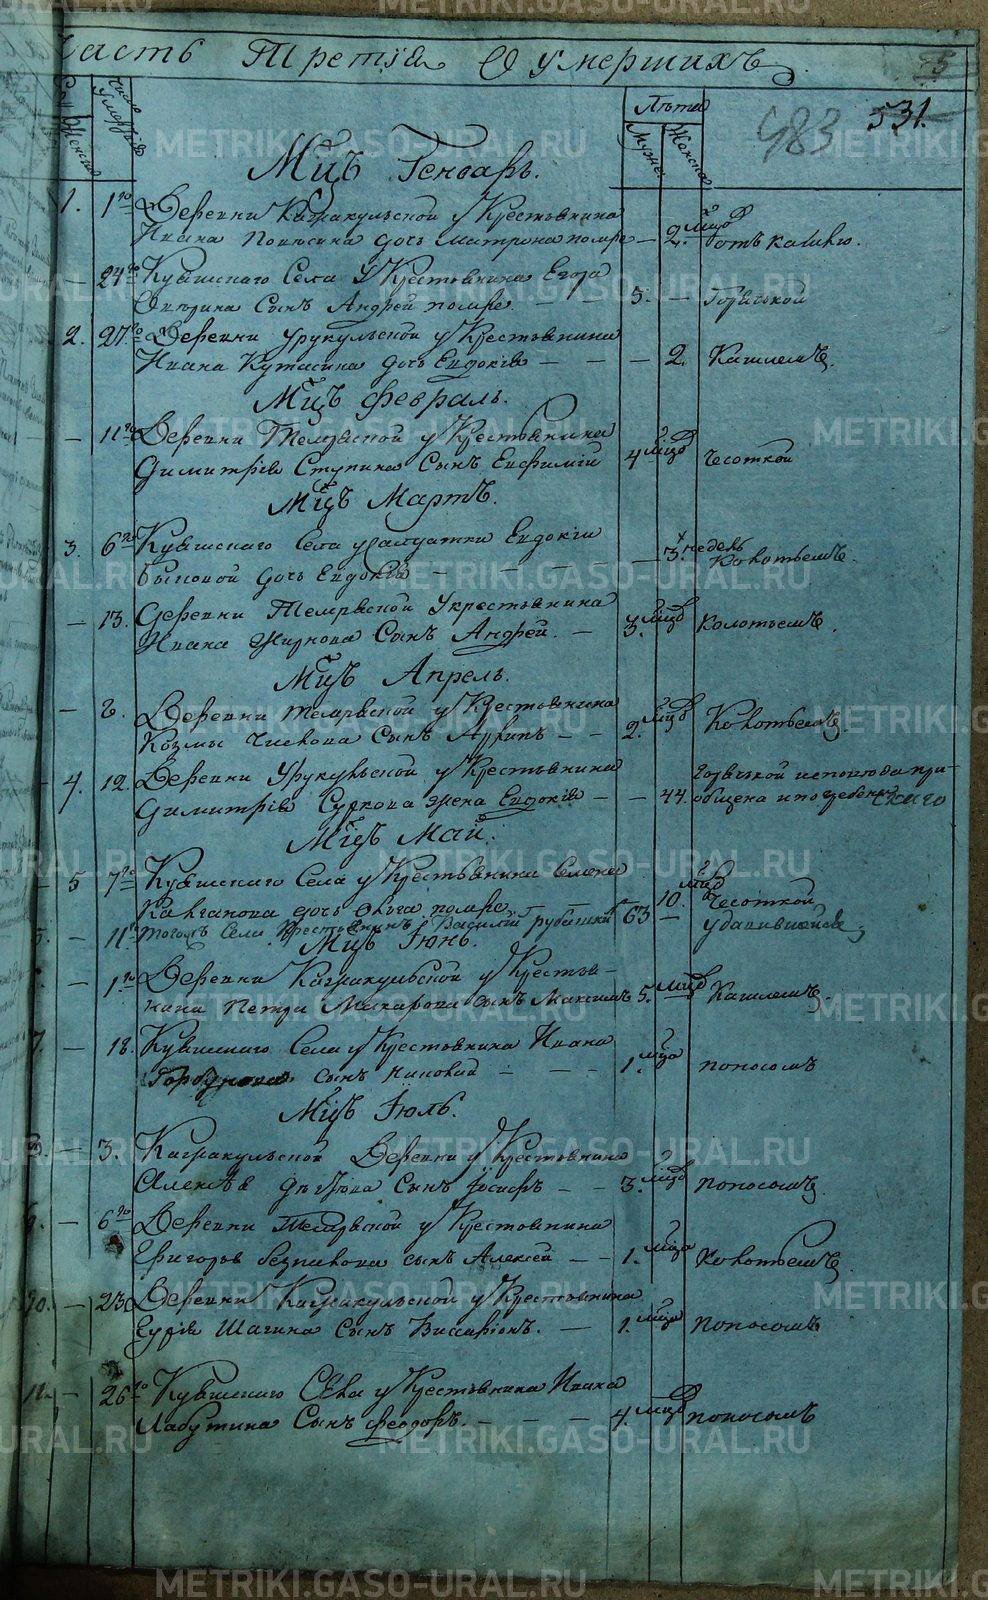 Часть Третія О умершихъ
45
483 531.
Число умершихъ
Женска
Лѣта
Мужс. Женска
Мцъ Генварь.
1. 1го Деревни Кагракульской у Крестьянина
Ивана дочь Матрона помре — 2. мцъ отъ кашлю.
— 24го Куяшскаго Села у Крестьянина Егора
сынъ Андрей помре. — — 5. — Горячькой
2. 27го Деревни Урукульской у Крестьянина
Ивана Кутасина дочь Евдокія — — — — 2. Кашлемъ.
Мцъ февраль.
— 11го Деревни Темрясской у Крестьянина
Димитрія Ступина Сынъ Евфимій 4 мцъ Чесоткой
Мцъ Мартъ.
3. 6го Куяшскаго Села у салдатки Евдокіи
Быковой дочь Евдокія — — — — 3. недель Колотьемъ.
— 13. Деревни Темрясской у крестьянина
Ивана Жирнова Сынъ Андрей. — 3. мцъ колотьемъ.
Мцъ Апрель.
— 8. Деревни темрясской у Крестьянина
Козмы Сынъ Архипъ — — 2. мцъ Колотьемъ.
4. 12. Деревни Урукульской у Крестьянина
Димитрія Суркова жена Евдокія — — 44. Горячькой исповѣдана прі-
общена и погребена
Мцъ Май.
5 7го Куяшскаго Села у Крестьянина Семена
Калганова дочь Ольга помре 10. мцъ Чесоткой
— 11го тогожъ Села Крестьянинъ Василій Рубашкинъ 63 — удавившейся
Мцъ Іюнь.
— 1го Деревни Кагракульской у Крестья-
нина Петра Макарова сынъ Максимъ 5. мцъ Кашлемъ
7. — 18. Куяшскаго Села у Крестьянина Ивана
Горбунова сынъ — — — 1. мца поносомъ
Мцъ Іюль.
8. — 3. Кагракульской Деревни у Крестьянина
Алексѣя Сынъ Іосифъ — — 3. мцъ поносомъ
9. — 6го Деревни Темрясской у Крестьянина
Григорья сынъ Алексей — — 1. мца Колотьемъ
10. — 23. Деревни Кагракульской у Крестьянина
Гурія Шагина Сынъ Висаріонъ. — 1. мца поносомъ
11. — 26го Куяшскаго Села у Крестьянина Ивана
Лабутина Сынъ феодоръ. — — — 4. мцъ поносомъ
METRIKI.GASO-URAL.RU